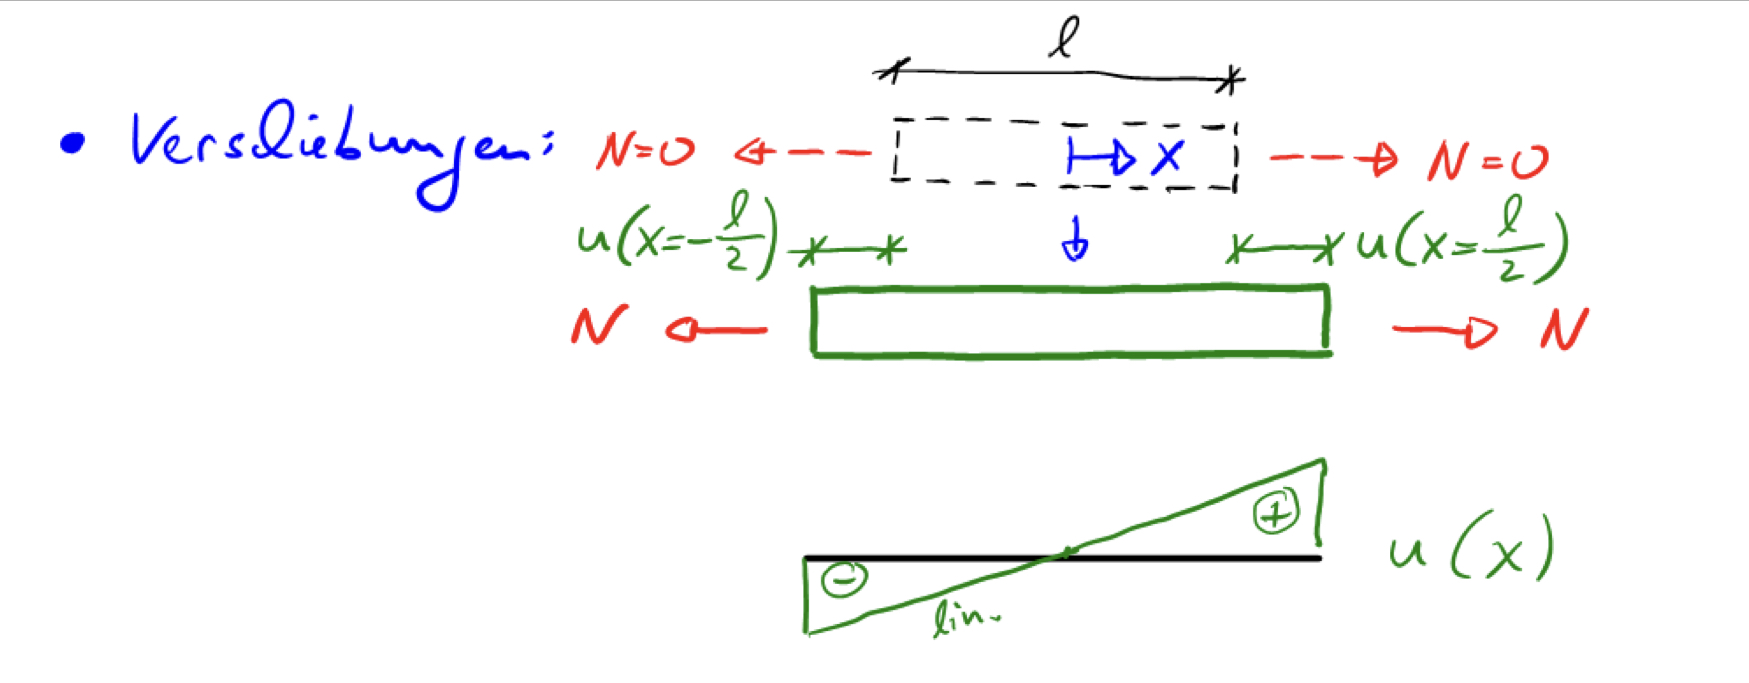 l
• Verschiebungen: N=0 x N=0
u(x=-l/2) u(x=l/2)
N N
⊕
u(x)
⊖
lin.